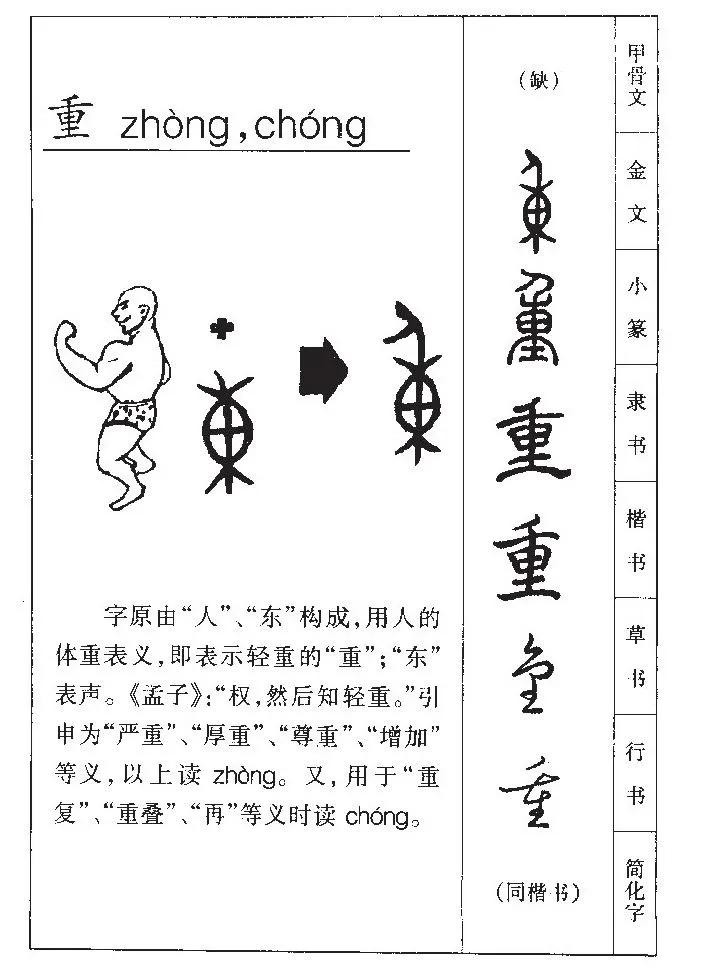 重 zhòng,chóng
字原由“人”、“东”构成,用人的
体重表义,即表示轻重的“重”;“东”
表声。《孟子》:“权,然后知轻重。”引
申为“严重”、“厚重”、“尊重”、“增加”
等义,以上读 zhòng。又,用于“重
复”、“重叠”、“再”等义时读 chóng。
(缺)
重
重
重
重
重
重
(同楷书)
甲骨文
金文
小篆
隶书
楷书
草书
行书
简化字